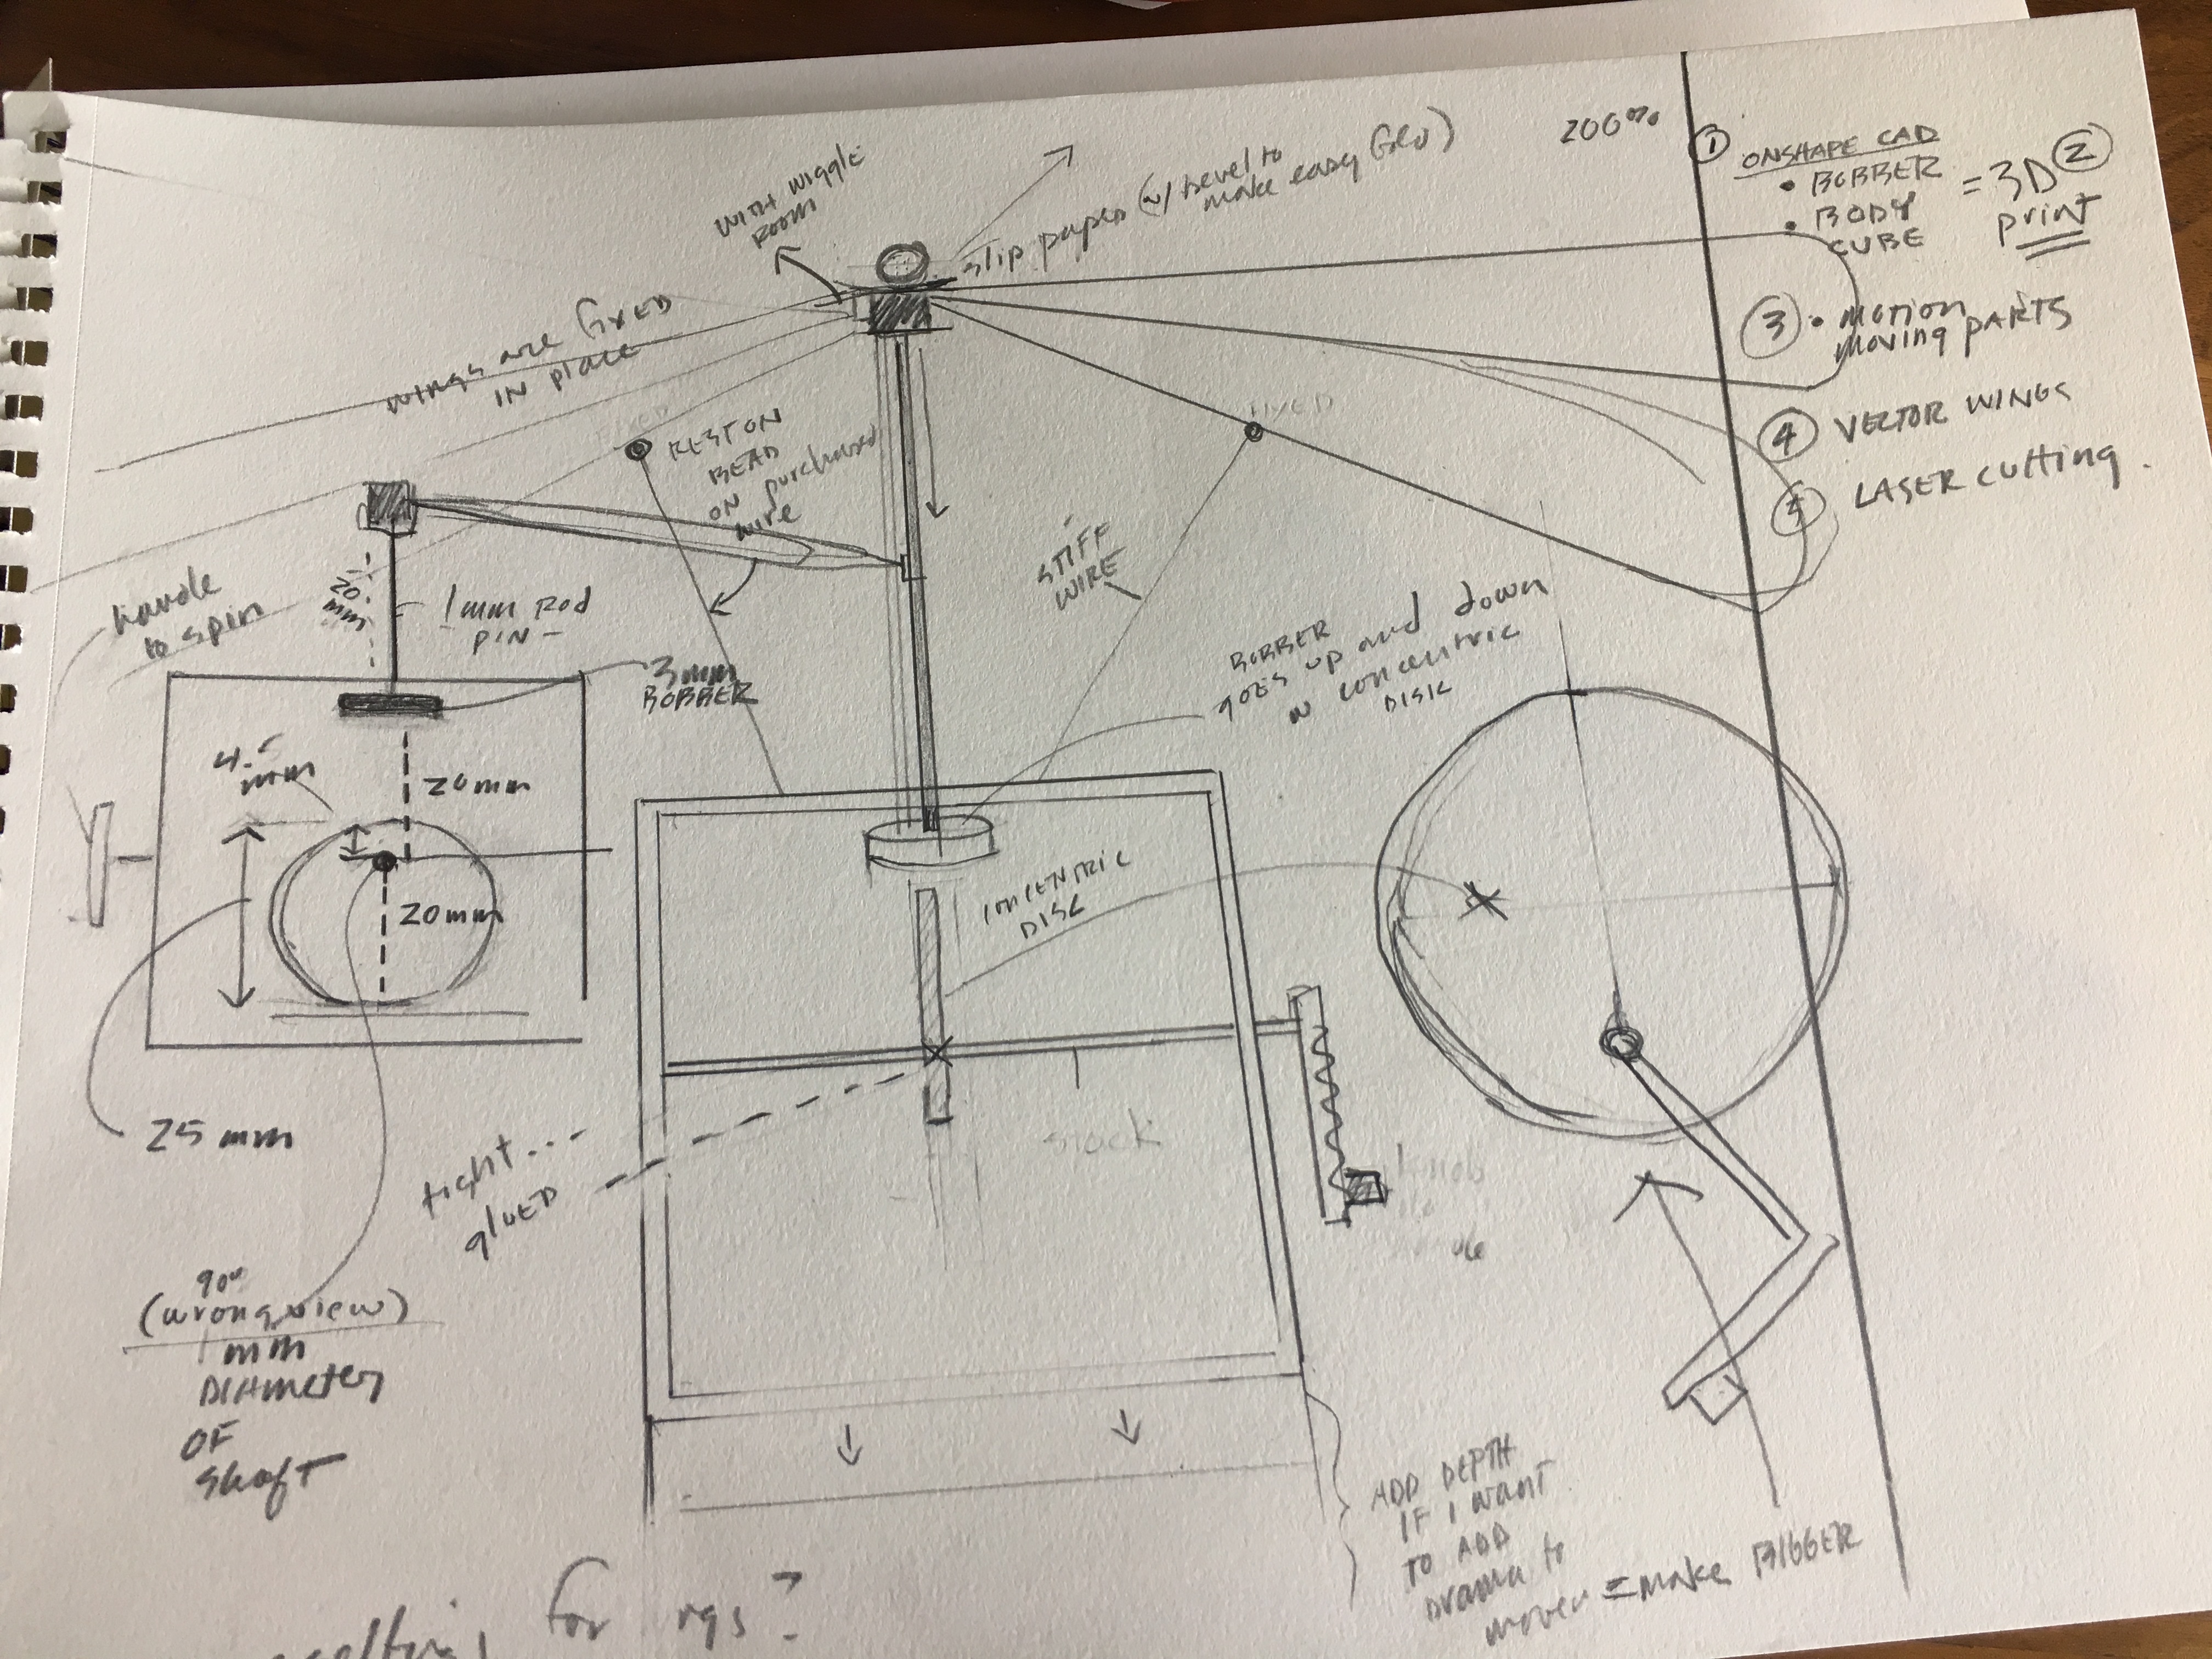 200%
① ONSHAPE CAD
• BOBBER
• BODY
CUBE
= 3D ②
print
③ • MOTION
moving PARTS
④ VECTOR WINGS
⑤ LASER CUTTING.
WITH WIGGLE
ROOM
slip paper (w/ bevel to
make easy
wings are fixed
IN place
FIXED
REST ON
BEAD
ON purchased
wire
STIFF
WIRE
handle
to spin
20
mm
1mm Rod
PIN
3mm
BOBBER
BOBBER
goes up and down
on concentric
DISK
4.5
mm
20mm
20mm
CONCENTRIC
DISC
25 mm
tight...
glued
90°
(wrong view)
1mm
DIAMETER
OF
shaft
knob
ADD DEPTH
IF I want
TO ADD
Drama to
mover = make BIGGER
for